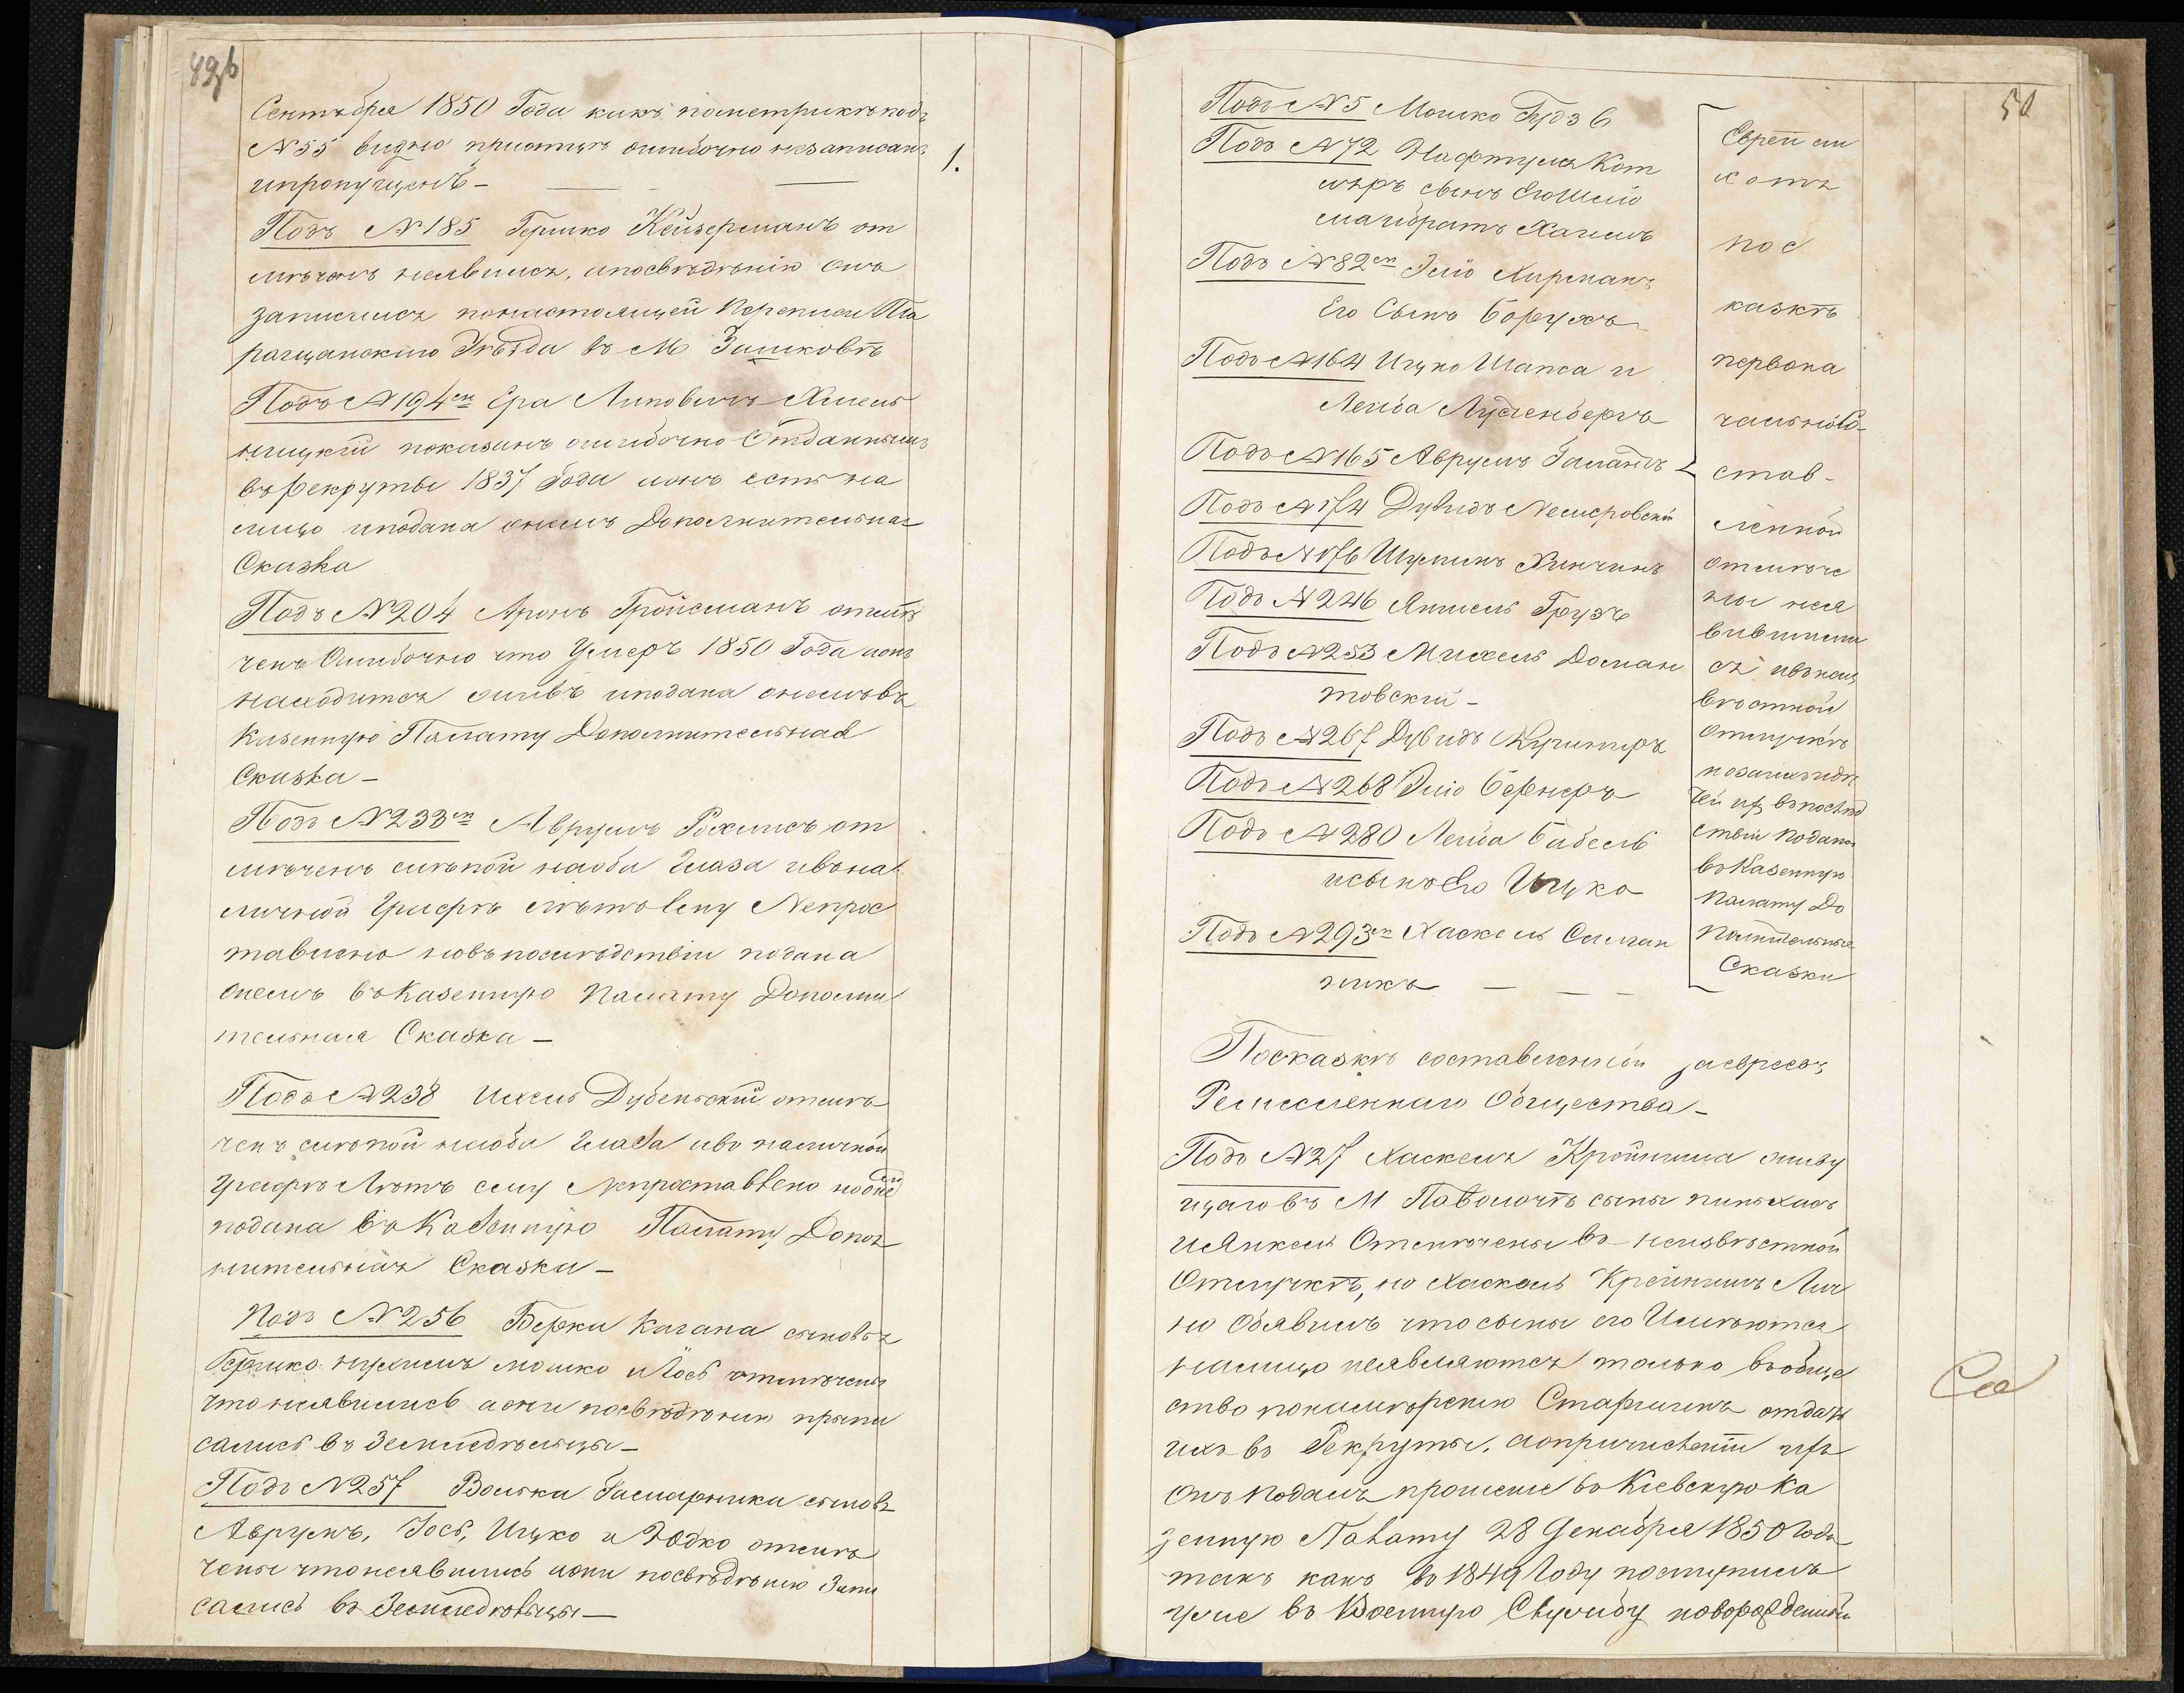 49об
Сентября 1850 Года какъ пометрикѣ подъ
№ 55 видно притомъ ошибочно незаписанъ
ипропущенъ — 1.
Подъ № 185 Гершко Кейзерманъ от
мѣченъ неявился, апосвѣдѣнію онъ
записался понастоящей Переписи Та
ращанскаго Уѣзда въ М
Подъ № 194м Ера Липовичъ Хмель
ницкій показанъ ошибочно Отданнымъ
въ рекруты 1837 Года ионъ есть на
лицо иподана онемъ Дополнительная
Сказка
Подъ № 204 Аронъ Гройсманъ отмѣ
ченъ Ошибочно что Умеръ 1850 Года ионъ
находится живъ иподана онемъ въ
Казенную Палату Дополнительная
Сказка —
Подъ № 233м Аврумъ Рохлисъ от
мѣченъ слѣпой наоба Глаза ивъ на
личной Графѣ лѣтъ ему Непрос
тавлено новъпослѣдствіи подана
онемъ въ Казенную Палату Дополни
тельная Сказка —
Подъ № 238 Ихель Дубенскій отмѣ
ченъ слѣпой наоба Глаза ивъ наличной
Графѣ Лѣтъ ему непроставлено но
подана въ Казенную Палату Допол
нительная Сказка —
Подъ № 256 Берки Кагана сыновья
Гершко Нухимъ Мошко и Іось отмѣчены
что неявились аони посвѣдѣнию припи
сались въ Земледѣльцы —
Подъ № 257 Волька сыновья
Аврумъ, Іось, Ицко и Юдко отмѣ
чены что неявились иони посвѣдѣнию Запи
сались въ Земледѣльцы —
50
Подъ № 5 Мошко
Подъ № 72 Нафтула Кот
ляръ сынъ Его Шлио
Хаимъ
Подъ № 82м Элio Хирманъ
Его Сынъ Борухъ
Подъ № 164 Ицко Шапса и
Лейба
Подъ № 165 Аврумъ
Подъ № 174 Дувидъ Немеровскій
Подъ № 176 Шулимъ
Подъ № 246 Янкель
Подъ № 253 Михель Доман
товскій —
Подъ № 267 Дувидъ Кушниръ
Подъ № 268 Эліо Бернеръ
Подъ № 280 Лейба Бабель
исынъ Его Ицко
Подъ № 293м Хаскель Салган
никъ —
Евреи сіи
по с
казкѣ
первона
чально
став-
ленной
отмѣче
ны нея
вившими
ся ивънеиз
вѣстной
Отлучкѣ
въпослѣд
ствіи Поданы
въ Казенную
Палату До
полнительные
Сказки
Посказкѣ составленной заевреевъ
Ремесленнаго Общества —
Подъ № 27 Хаскеля живу
щаго въ М Паволочѣ сыны пиньхасъ
и Янкель Отмѣчены въ неизвѣстной
Отлучкѣ, но Хаскель Лич
но Обявилъ что сыны его Имѣются
налицо неявляются только въобще
ство понамѣренію Старшинъ отдать
ихъ въ Рекруты,
Онъ подалъ прошение въ Киевскую Ка
зенную Палату 28 Декабря 1850 Года
такъ какъ въ 1849 Году поступилъ
уже въ Военную Службу новорожденной